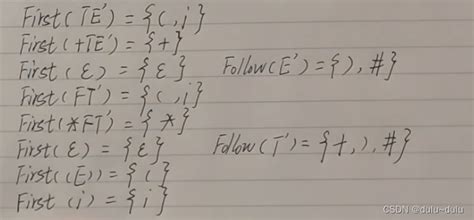 First(TE') = {(,i}
First(+TE') = {+}
First(ε) = {ε} Follow(E') = {),#}
First(FT') = {(,i}
First(*FT') = {*}
First(ε) = {ε} Follow(T') = {+,),#}
First((E)) = {(}
First(i) = {i}
CSDN @dulu~dulu